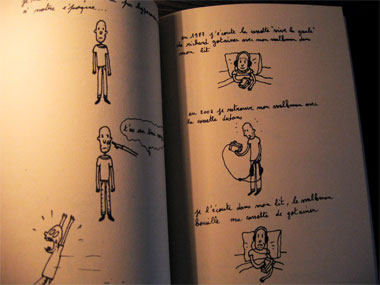 à notre époque...
en 1987 j'écoute la cassette "vive la gaule"
de richard gotainer avec mon walkman dans
mon lit
en 2002 je retrouve mon walkman avec
la cassette dedans
je l'écoute dans mon lit, le walkman
bousille ma cassette de gotainer